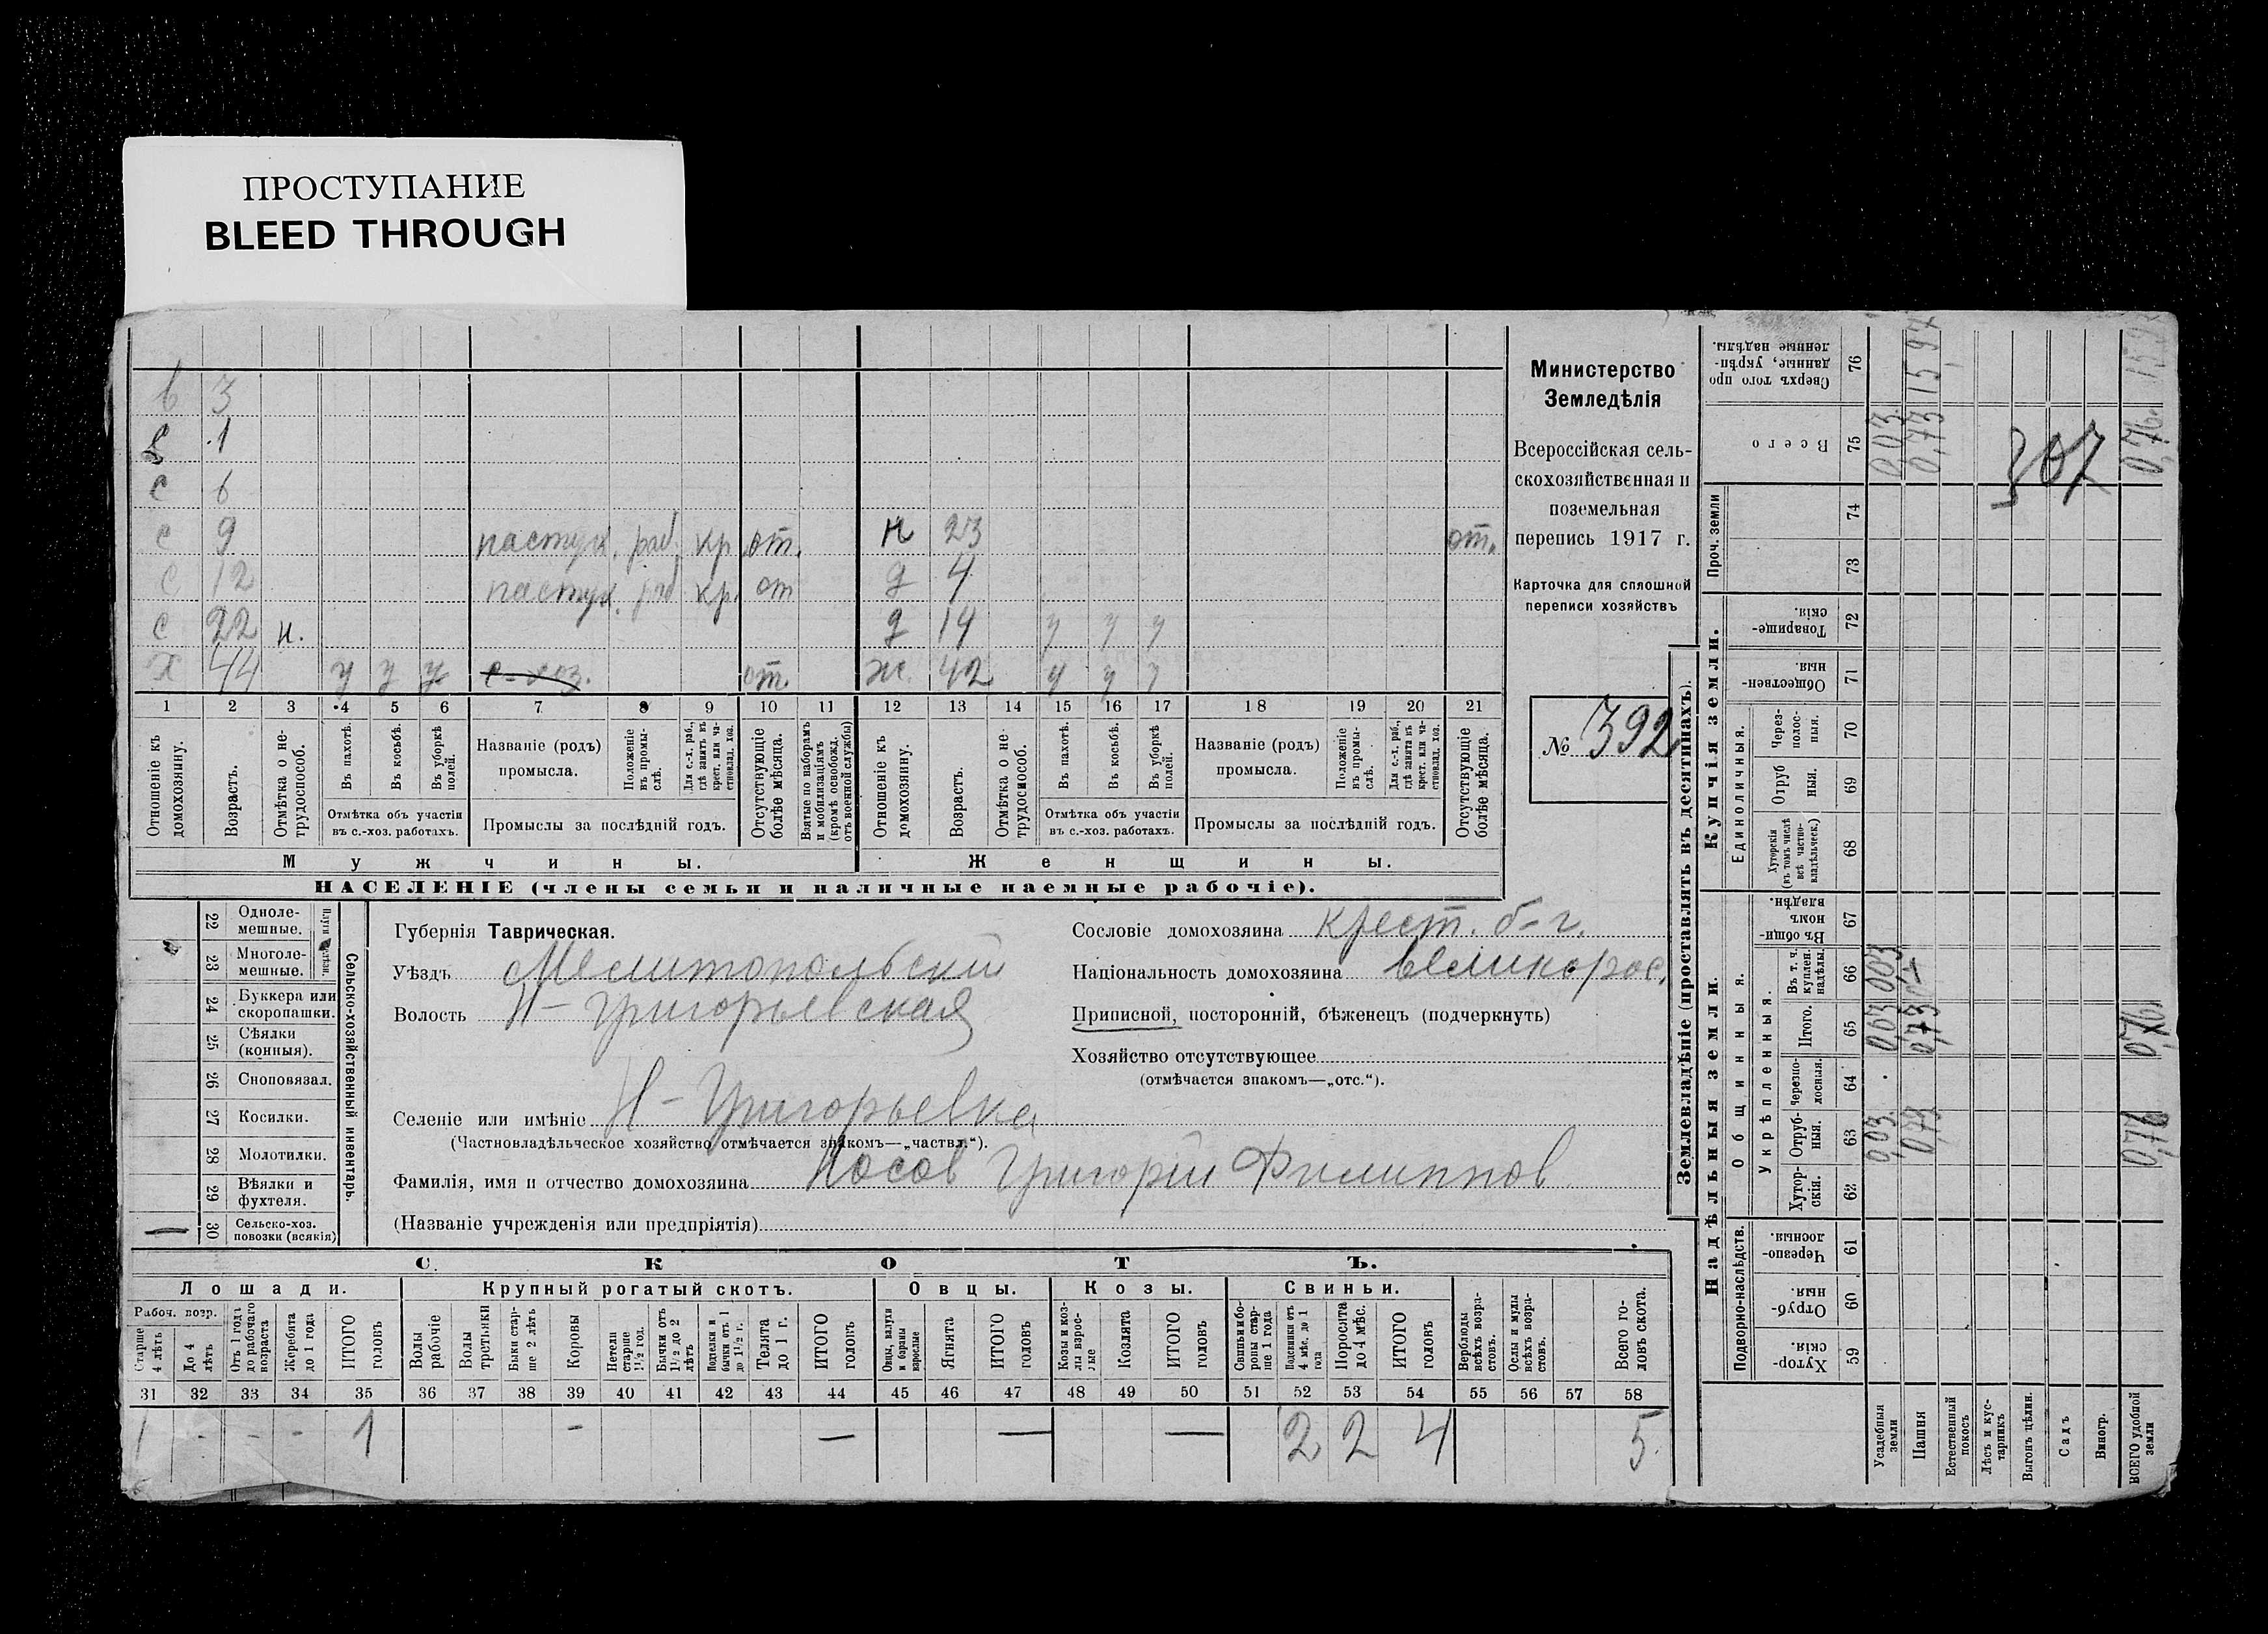 ПРОСТУПАНИЕ
BLEED THROUGH
в 3
1
с 6
с 9 пастух. раб. кр. от. н 23 от.
с 12 пастух. раб кр. от д 4
с 22 н. д 14 у у у
х 44 у у у с-хоз. от. ж. 42 у у у
1 2 3 4 5 6 7 8 9 10 11 12 13 14 15 16 17 18 19 20 21
Отношеніе къ домохозяину.
Возрастъ.
Отмѣтка о нетрудоспособ.
Въ пахотѣ.
Въ косьбѣ.
Въ уборкѣ полей.
Отмѣтка объ участіи въ с.-хоз. работахъ.
Названіе (родъ) промысла.
Положеніе въ промыслѣ.
Для с.-х. раб., гдѣ занятъ въ крест. или частновлад. хоз.
Промыслы за послѣдній годъ.
Отсутствующіе болѣе мѣсяца.
Взятые по наборамъ и мобилизаціямъ (кромѣ освобожд. отъ военной службы)
Отношеніе къ домохозяину.
Возрастъ.
Отмѣтка о нетрудоспособ.
Въ пахотѣ.
Въ косьбѣ.
Въ уборкѣ полей.
Отмѣтка объ участіи въ с.-хоз. работахъ.
Названіе (родъ) промысла.
Положеніе въ промыслѣ.
Для с.-х. раб., гдѣ занята въ крест. или частновлад. хоз.
Промыслы за послѣдній годъ.
Отсутствующіе болѣе мѣсяца.
Мужчины. Женщины.
НАСЕЛЕНІЕ (члены семьи и наличные наемные рабочіе).
Министерство
Земледѣлія
Всероссійская сель-
скохозяйственная и
поземельная
перепись 1917 г.
Карточка для сплошной
переписи хозяйствъ
№ 392
22 Одноле-мешные.
23 Многоле-мешные.
24 Буккера или скоропашки.
25 Сѣялки (конныя).
26 Сноповязал.
27 Косилки.
28 Молотилки.
29 Вѣялки и фухтеля.
— 30 Сельско-хоз. повозки (всякія)
Сельско-хозяйственный инвентарь.
Губернія Таврическая.
Уѣздъ Мелитопольскій
Волость Н-Григорьевская
Селеніе или имѣніе Н-Григорьевка
(Частновладѣльческое хозяйство отмѣчается знакомъ—„частвл.“).
Фамилія, имя и отчество домохозяина Носов Григорій Филиппов
(Названіе учрежденія или предпріятія)
Сословіе домохозяина крест. б-г.
Національность домохозяина великорос.
Приписной, посторонній, бѣженецъ (подчеркнуть)
Хозяйство отсутствующее
(отмѣчается знакомъ—„отс.“).
СКОТЪ.
Лошади. Крупный рогатый скотъ. Овцы. Козы. Свиньи.
Рабоч. возр.
Старше 4 лѣтъ
До 4 лѣтъ
Отъ 1 года до рабочаго возраста
Жеребята до 1 года
ИТОГО головъ
Волы рабочіе
Волы третьяки
Быки старше 2 лѣтъ
Коровы
Нетели старше 1½ год.
Бычки отъ 1½ до 2 лѣтъ
Телята до 1 г.
ИТОГО головъ
Овцы, валухи и бараны взрослые
Ягнята
ИТОГО головъ
Козы и козлы взрослые
Козлята
ИТОГО головъ
Свиньи и боровы старше 1 года
Подсвинки отъ 4 мѣс. до 1 года
Поросята до 4 мѣс.
ИТОГО головъ
Верблюды всѣхъ возрастовъ.
Ослы и мулы всѣхъ возрастовъ.
Всего головъ скота.
31 32 33 34 35 36 37 38 39 40 41 42 43 44 45 46 47 48 49 50 51 52 53 54 55 56 57 58
1 - - - 1 - — — — 2 2 4 5
Землевладѣніе (проставлять въ десятинахъ).
Надѣльныя земли. Купчія земли. Проч. земли
Подворно-наслѣдств.
Общинныя.
Укрѣпленныя.
Единоличныя.
Хуторскія. 59
Отрубныя. 60
Черезполосныя. 61
Хуторскія. 62
Отрубныя. 63
Черезполосныя. 64
Итого. 65
Въ т. ч. куплен. надѣлы. 66
Въ общиномъ владѣн. 67
Хуторскія (въ томъ числѣ всѣ частновладѣльческ.) 68
Отрубныя. 69
Черезполосныя. 70
Общественныя. 71
Товарищескія. 72
73
74
Всего 75
Сверхъ того проданные, укрѣпленные надѣлы. 76
Усадебныя земли 0,03 0,03 003 0,03
Пашня 0,73 0,73 0,73 15,94
Естественный покосъ
Лѣсъ и кустарникъ
Выгонъ цѣлин.
Садъ
Виногр.
ВСЕГО удобной земли 0,76 0,76 0,76
307